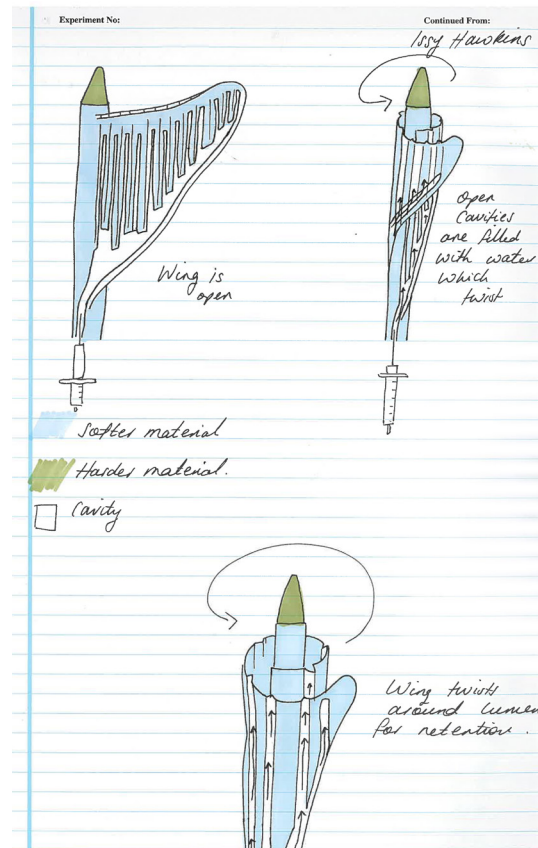 Experiment No:
Continued From:
Issy Hawkins
Wing is
open
open
cavities
are filled
with water
which
twist
Softer material
Harder material.
Cavity
Wing twists
around lumen
for retention.